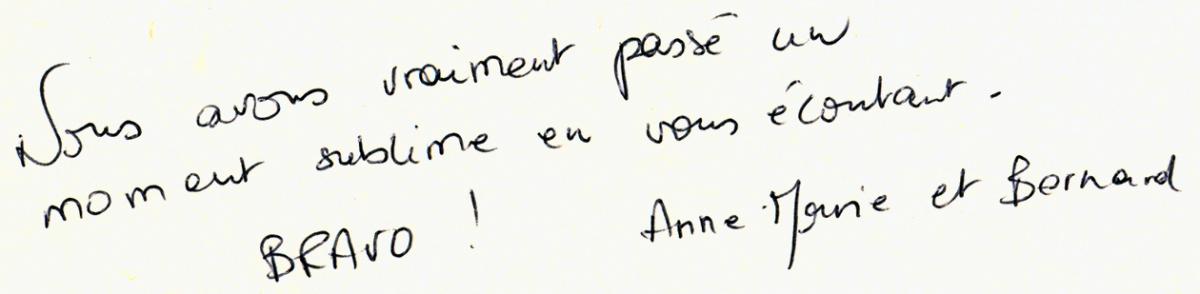 Nous avons vraiment passé un
moment sublime en vous écoutant.
BRAVO ! Anne-Marie et Bernard